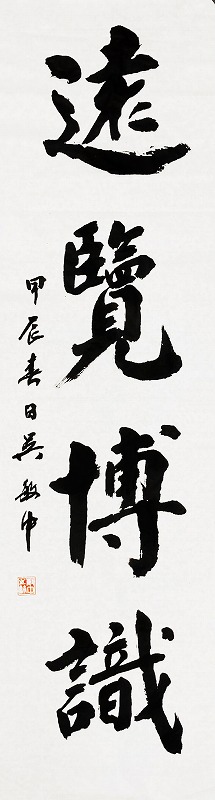 遠覽博識
甲辰春日吳敏中